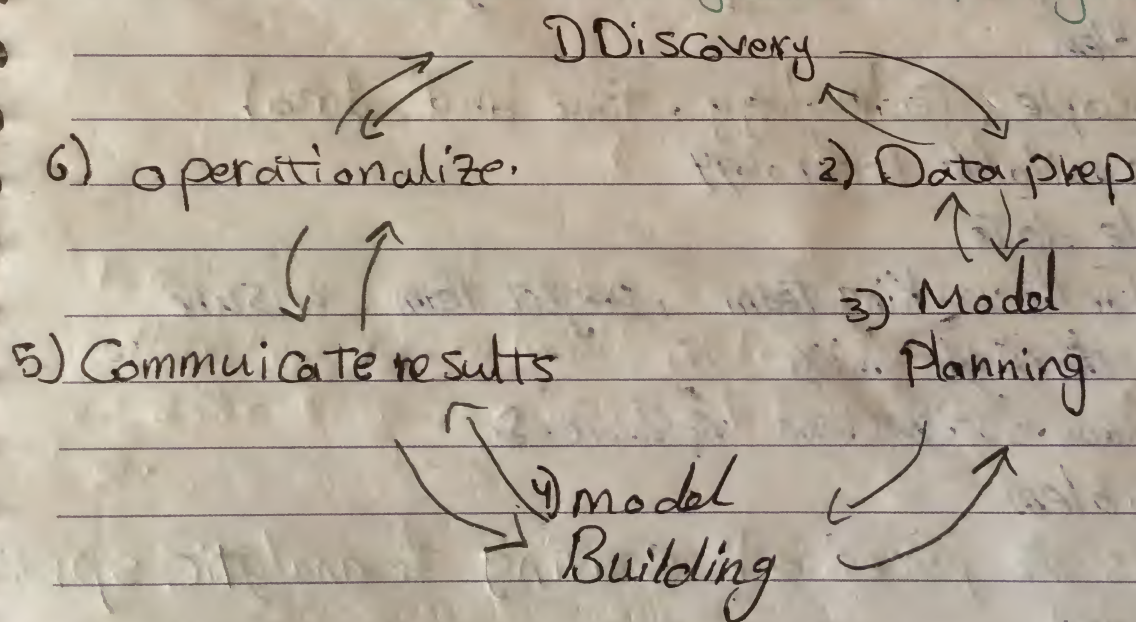 1) Discovery
6) operationalize.
2) Data prep
3) Model
Planning.
5) Commuicate results
4) model
Building